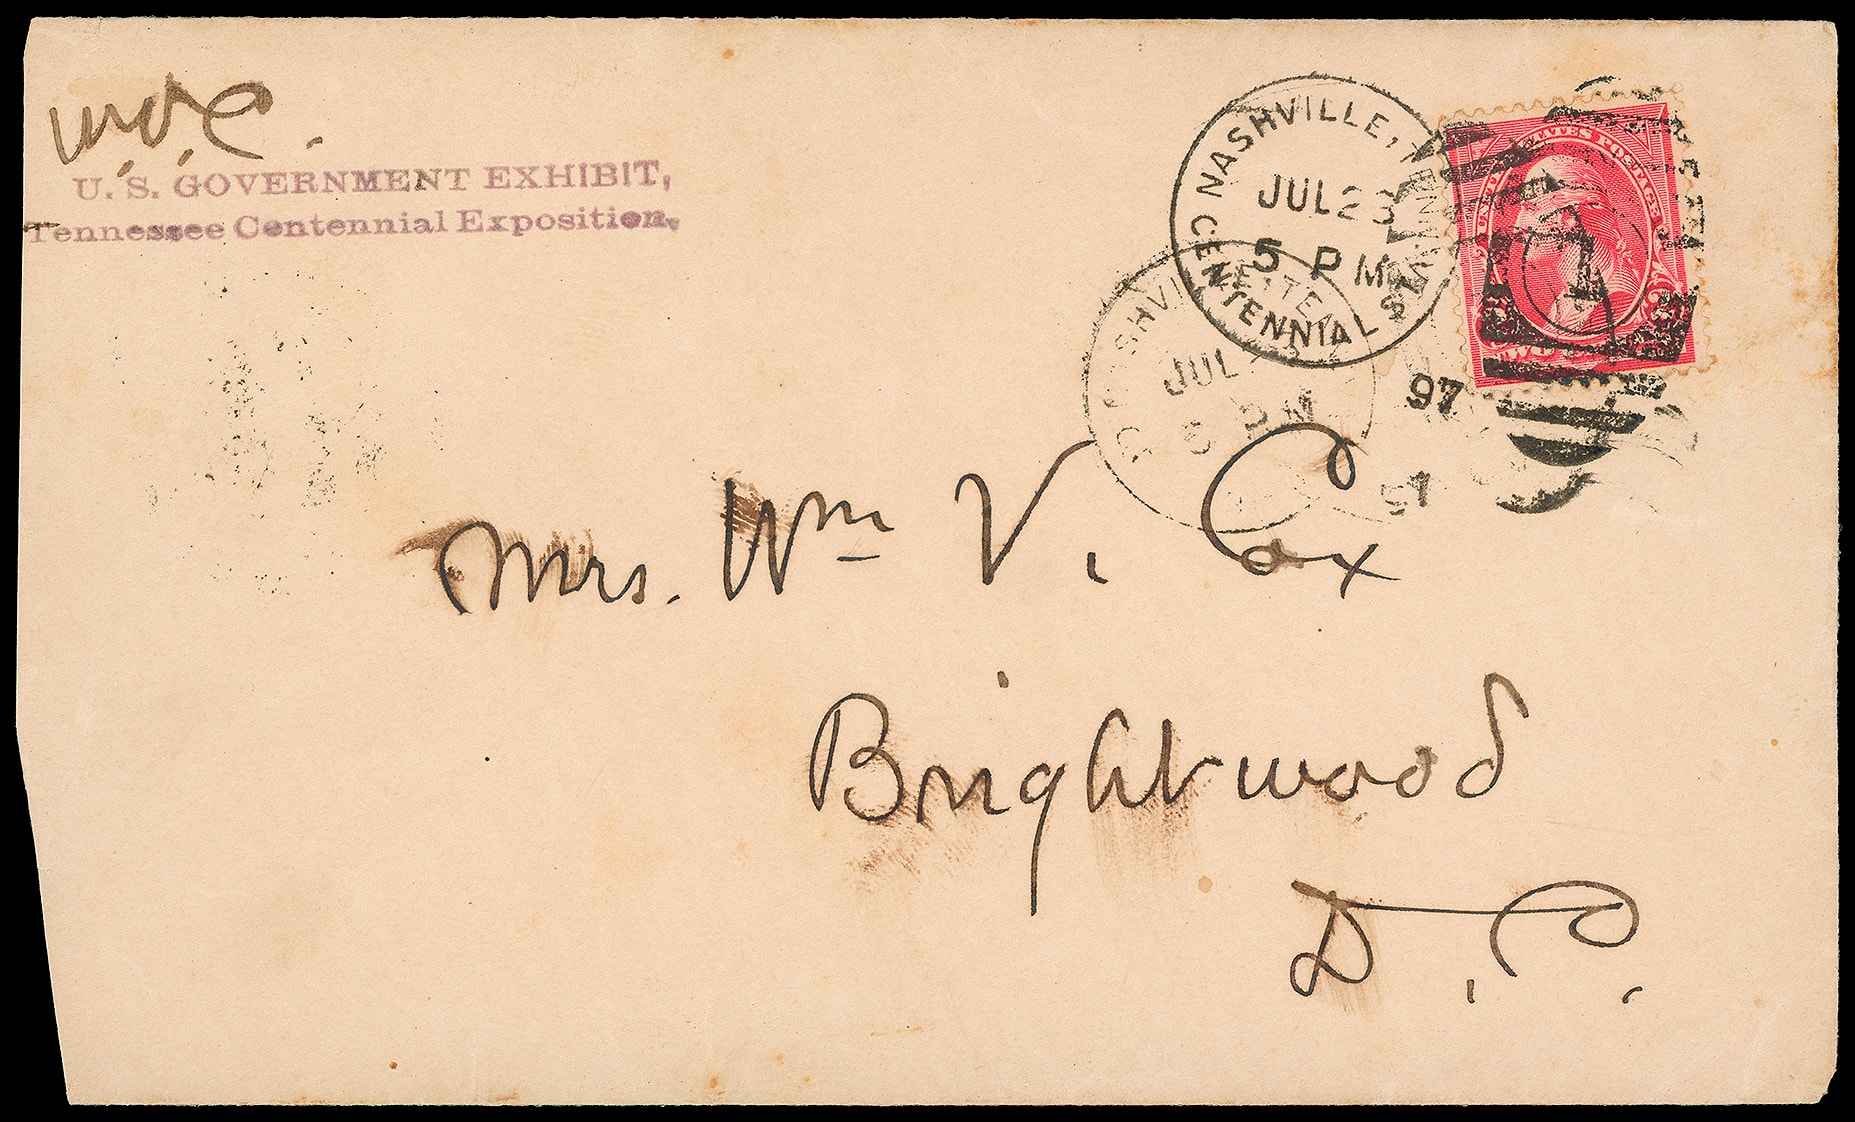 W.V.C.
U. S. GOVERNMENT EXHIBIT,
Tennessee Centennial Exposition,
NASHVILLE, TENN.
JUL 23
5 PM
CENTENNIAL STA.
97
1
UNITED STATES POSTAGE
TWO
NASHVILLE, TE
JUL
PM
97
Mrs. Wm V. Cox
Brightwood
D.C.